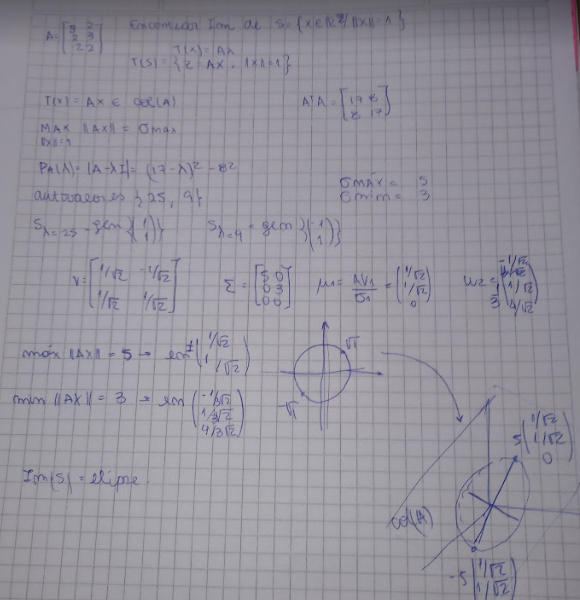 A= [3 2
2 3
2 2]
Encontrar Im de S={x∈R²/||x||=1}
T(x)=Ax
T(S)={z=Ax, ||x||=1}
T(x)=Ax ∈ col(A)
AᵗA=[17 8
8 17]
MAX ||Ax|| = σmax
||x||=1
PA(λ)=|A-λI|=(17-λ)²-8²
autovalores {25, 9}
σmáx = 5
σmin = 3
Sλ=25=gen{(1
1)}
Sλ=9=gen{(-1
1)}
V=[1/√2 -1/√2
1/√2 1/√2]
Σ=[5 0
0 3
0 0]
μ1=AV1/σ1=(1/√2
1/√2
0)
máx ||Ax|| = 5 → en
1/√2
1/√2
min ||Ax|| = 3 → en
(-1/3√2
1/3√2
4/3√2)
Im(S)=elipse
5(1/√2
1/√2
0)
col(A)
-5[1/√2
1/√2]